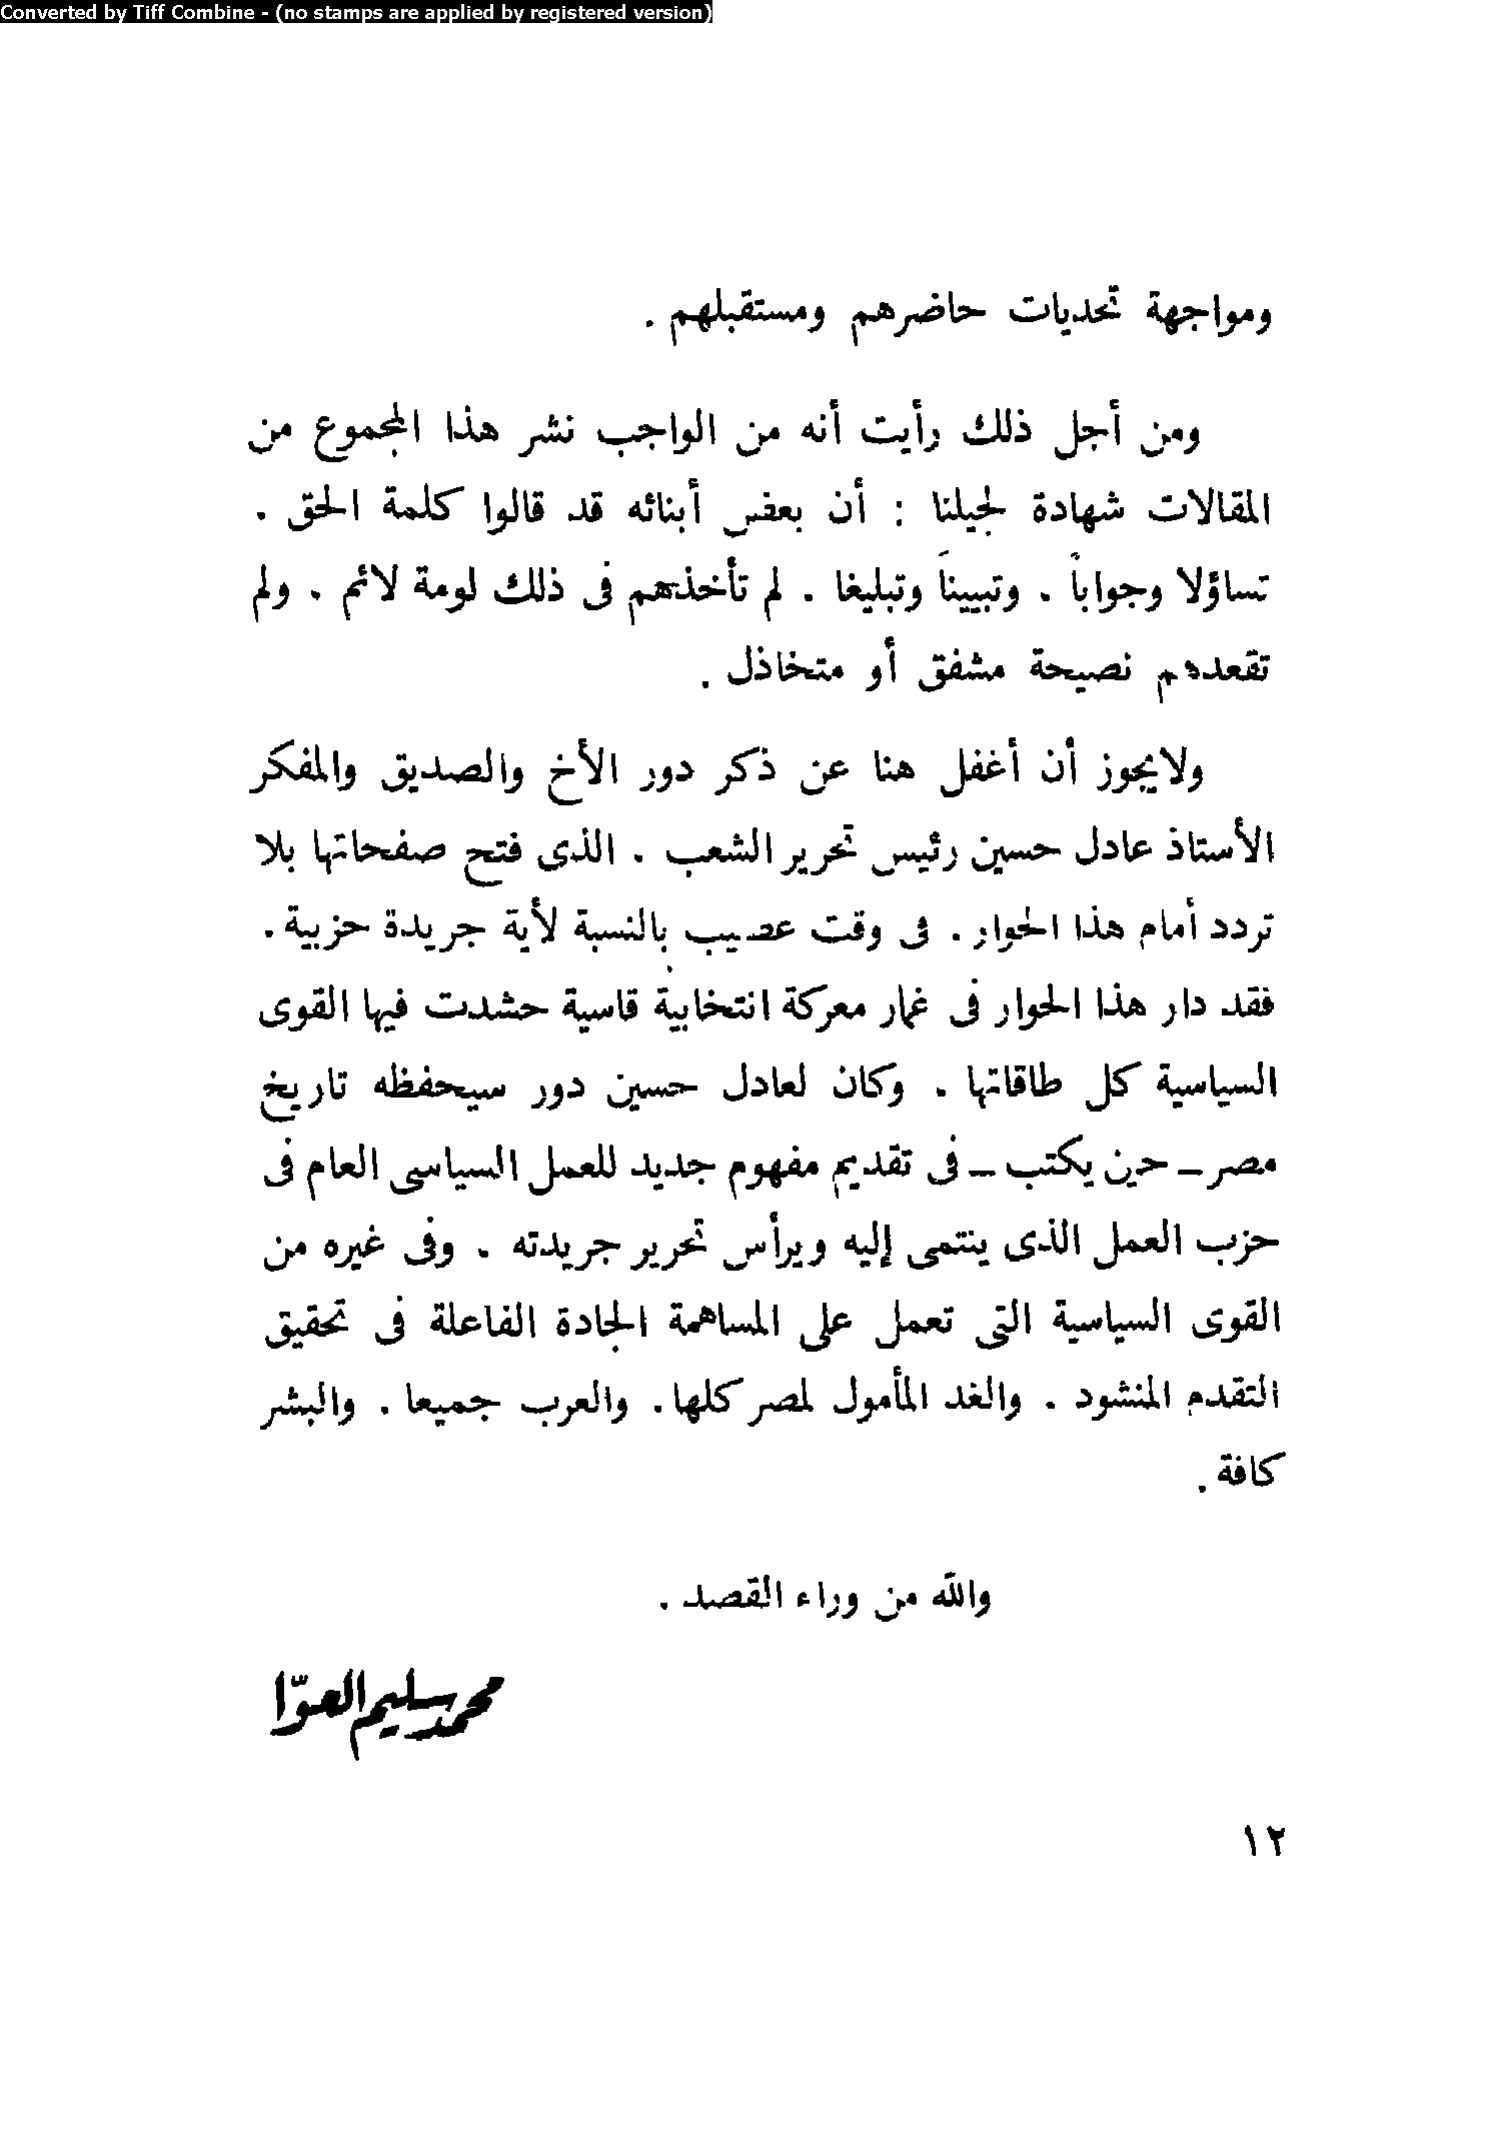 Converted by Tiff Combine - (no stamps are applied by registered version)
ومواجهة تحديات حاضرهم ومستقبلهم .
ومن أجل ذلك رأيت أنه من الواجب نشر هذا المجموع من
المقالات شهادة لجيلنا : أن بعض أبنائه قد قالوا كلمة الحق .
تساؤلا وجواباً . وتبييناً وتبليغا . لم تأخذهم فى ذلك لومة لائم . ولم
تقعدهم نصيحة مشفق أو متخاذل .
ولايجوز أن أغفل هنا عن ذكر دور الأخ والصديق والمفكر
الأستاذ عادل حسين رئيس تحرير الشعب . الذى فتح صفحاتها بلا
تردد أمام هذا الحوار . فى وقت عصيب بالنسبة لأية جريدة حزبية .
فقد دار هذا الحوار فى غمار معركة انتخابية قاسية حشدت فيها القوى
السياسية كل طاقاتها . وكان لعادل حسين دور سيحفظه تاريخ
مصر ــ حين يكتب ــ فى تقديم مفهوم جديد للعمل السياسى العام فى
حزب العمل الذى ينتمى إليه ويرأس تحرير جريدته . وفى غيره من
القوى السياسية التى تعمل على المساهمة الجادة الفاعلة فى تحقيق
التقدم المنشود . والغد المأمول لمصر كلها . والعرب جميعا . والبشر
كافة .
والله من وراء القصد .
محمد سليم العوّا
١٢